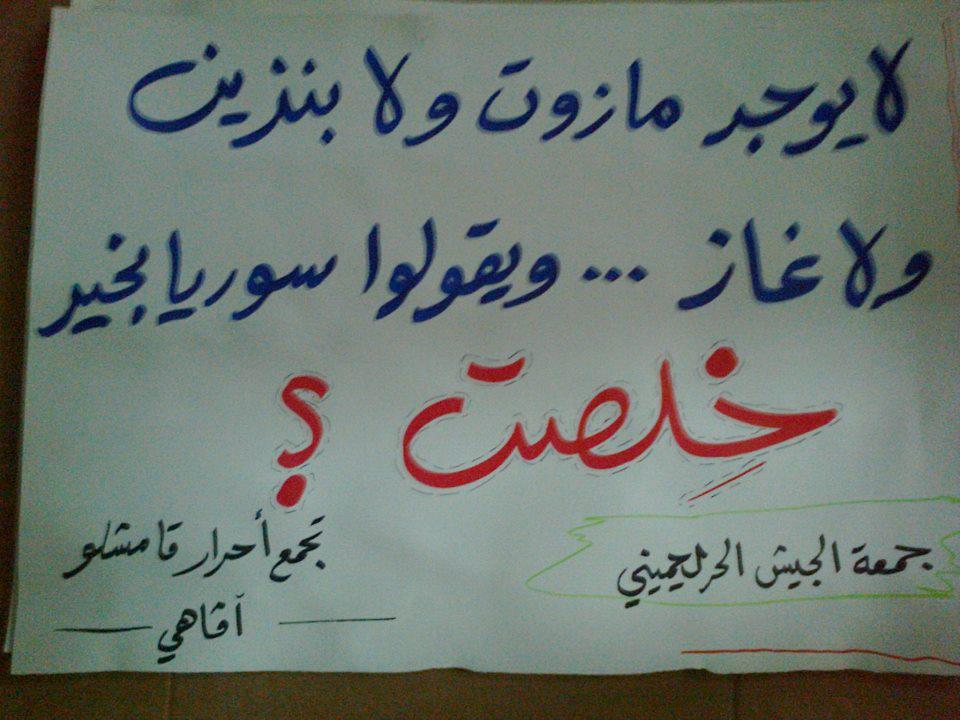 لا يوجد مازوت ولا بنذين
ولا غاز ... ويقولوا سوريا بخير
خِلصت ؟
جمعة الجيش الحر يحميني
تجمع أحرار قامشلو
آفاهي